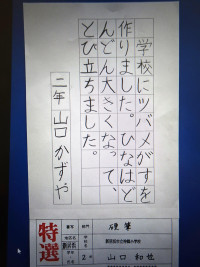 学校にツバメがすを
作りました。ひなはど
んどん大きくなって、
とび立ちました。
二年 山口 かずや
特選
硬筆
2
山口 和也